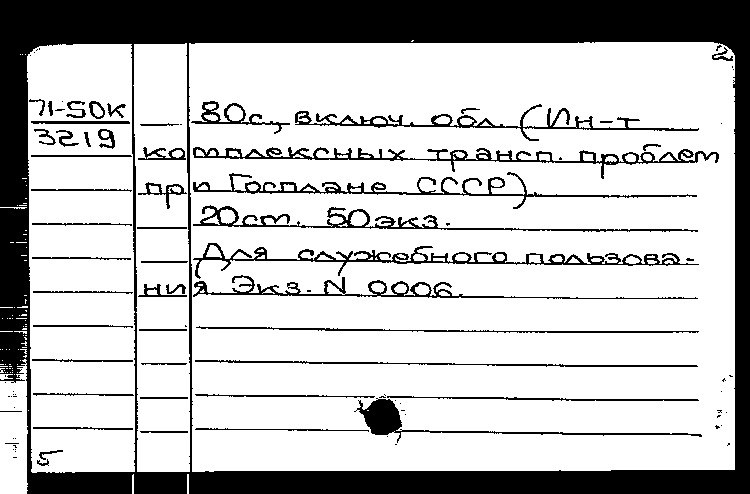 2
71-50к
3219
80с., включ. обл. (Ин-т
комплексных трансп. проблем
при Госплане СССР).
20ст. 50экз.
Для служебного пользова-
ния Экз. N 0006.
5